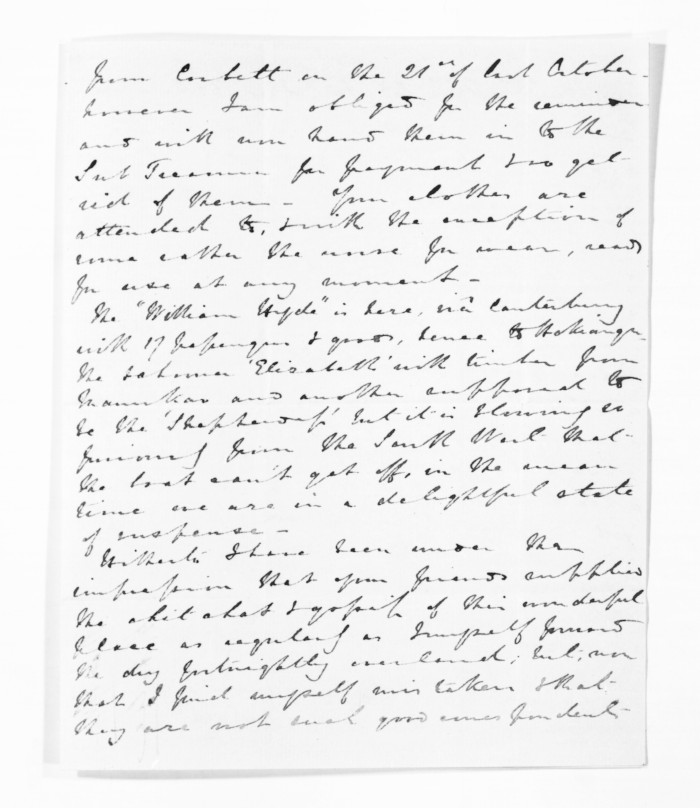 from Corbett on the 21st of last October -
however I am obliged for the reminder
and will now hand them in to the
Sub Treasurer for payment & so get
rid of them - Your clothes are
attended to, & with the exception of
some rather the worse for wear, ready
for use at any moment -
The "William Hyde" is here, via Canterbury
with 17 passengers & goods, hence to Hokianga
The schooner 'Elizabeth' with timber from
Manukau and another supposed to
be the 'Shepherdess' but it is blowing so
furiously from the South West that
the boat can't get off, in the mean
time we are in a delightful state
of suspense -
Hitherto I have been under the
impression that your friends supplied
the chit chat & gossip of this wonderful
place as regularly as I myself forward
the day fortnightly overland; but, now
that I find myself mistaken & that
they are not such good correspondents